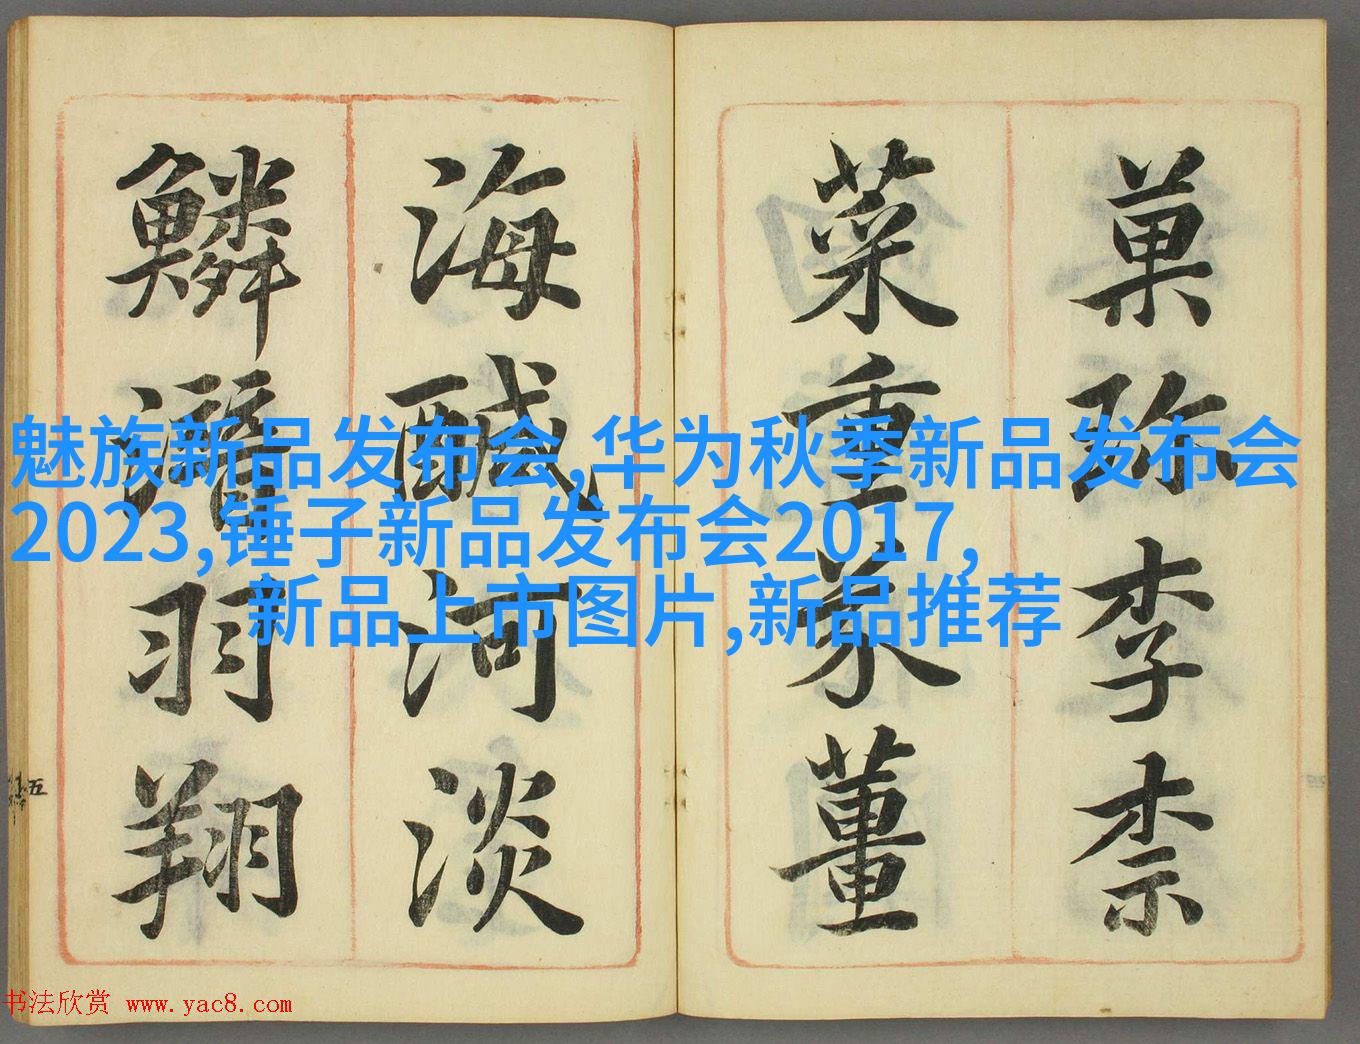 菓珎李柰
菜重芥薑
海醎河淡
鱗潛羽翔
五
魅族新品发布会,华为秋季新品发布会
2023,锤子新品发布会2017,
新品上市图片,新品推荐
书法欣赏 www.yac8.com